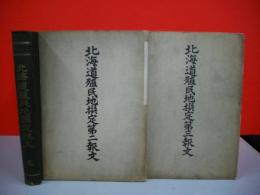 北海道殖民地撰定第二報文
北海道殖民地撰定第三報文